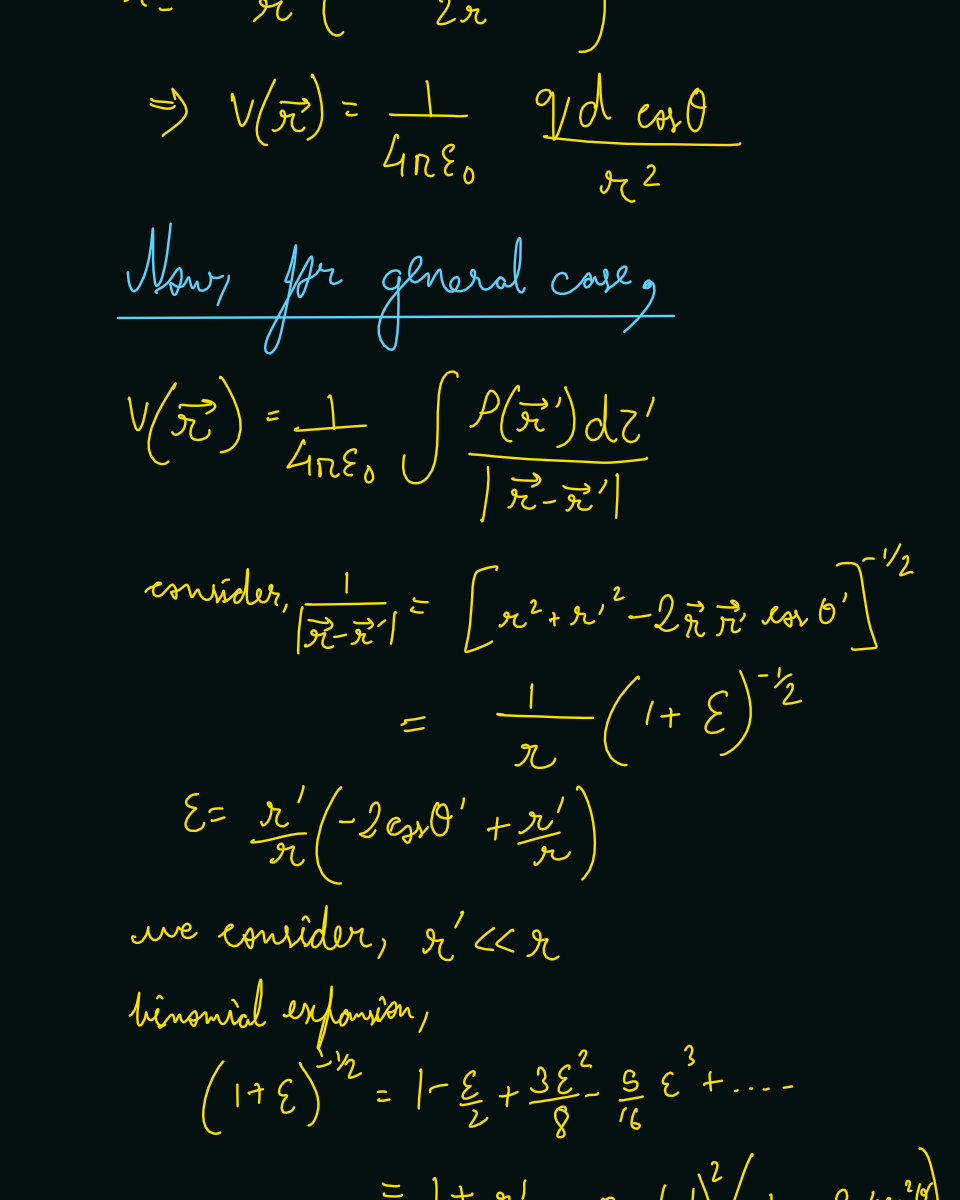 r ( 2r )
⇒ V(r⃗) = 1/4πε₀ qd cosθ/r²
Now, for general case,
V(r⃗) = 1/4πε₀ ∫ ρ(r⃗′)dτ′/|r⃗-r⃗′|
consider, 1/|r⃗-r⃗′| = [r²+r′²-2r⃗ r⃗′ cos θ′]^-1/2
= 1/r (1+ε)^-1/2
ε= r′/r (-2cosθ′ + r′/r)
we consider, r′<<r
binomial expansion,
(1+ε)^-1/2 = 1-ε/2 + 3ε²/8 - 5/16 ε³+....
= 1+